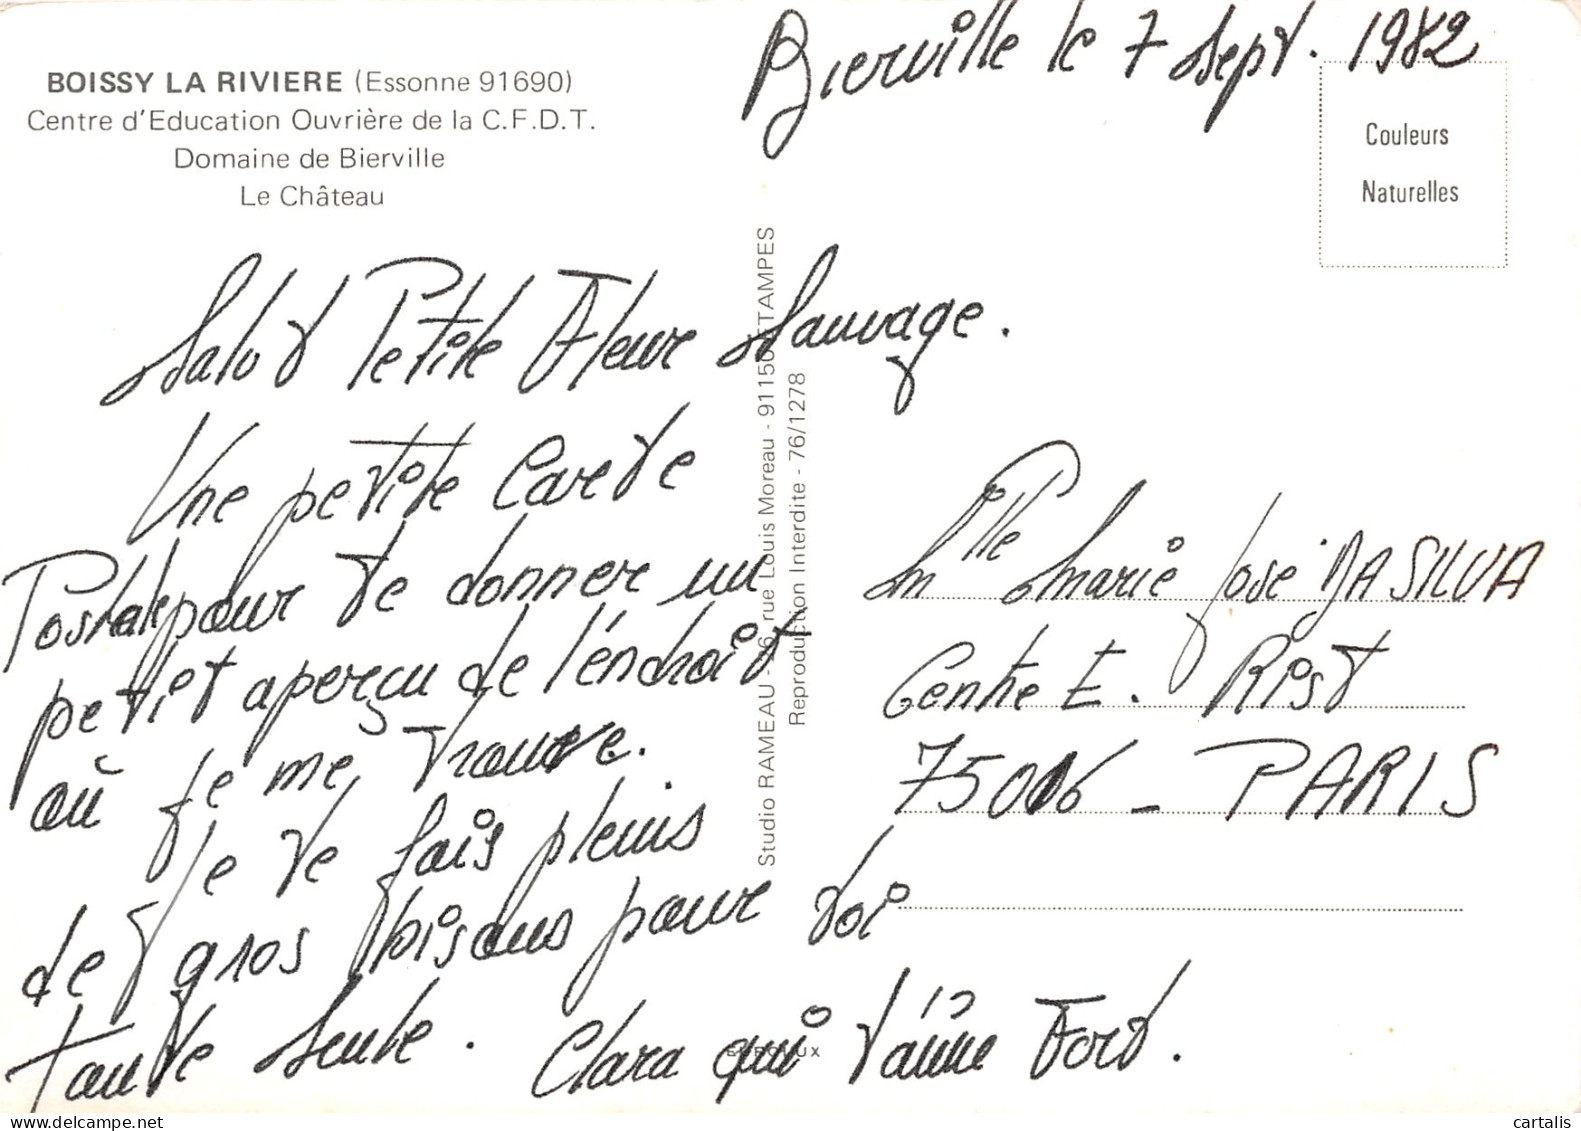 Bierville le 7 Sept. 1982
BOISSY LA RIVIERE (Essonne 91690)
Centre d'Education Ouvrière de la C.F.D.T.
Domaine de Bierville
Le Château
Couleurs
Naturelles
Salut Petite Fleur Sauvage.
Une petite Carte
Postale pour te donner un
petit aperçu de l'endroit
où je me trouve.
Je te fais pleins
de gros bisous pour toi
toute seule.
Clara qui t'aime Fort.
Studio RAMEAU - 26, rue Louis Moreau - 91150 ETAMPES
Reproduction Interdite - 76/1278
Mlle Marie José DA SILVA
Centre E. Rist
75016 - PARIS
EUROLUX
cartalis
www.delcampe.net